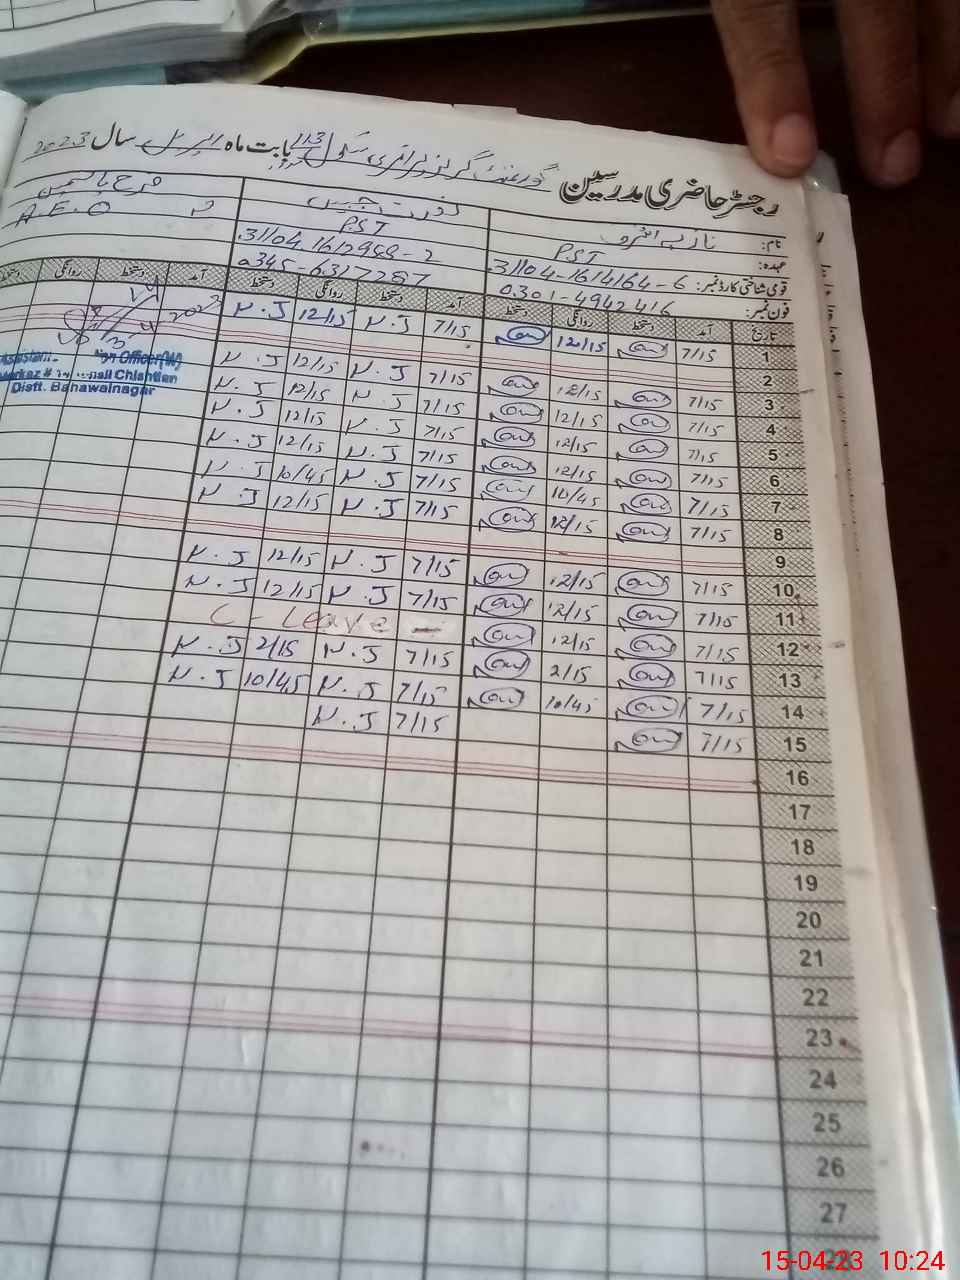 رجسٹر حاضری مدرسین گورنمنٹ گرلز پرائمری سکول 113 بابت ماہ اپریل سال 2023
نام:
فرح یاسمین
عہدہ: PST
PST
A.E.O
قومی شناختی کارڈ نمبر: 31104-1614164-6
فون نمبر: 0301-4942416
0345-6317287
تاریخ آمد دستخط روانگی دستخط آمد دستخط روانگی دستخط آمد دستخط روانگی دستخط
1 7/15 12/15 7/15 N.J 12/15 N.J 2023
2
3 7/15 12/15 7/15 N.J 12/15 N.J
4 7/15 12/15 7/15 N.J 12/15 N.J
5 7/15 12/15 7/15 N.J 12/15 N.J
6 7/15 12/15 7/15 N.J 12/15 N.J
7 7/15 10/45 7/15 N.J 10/45 N.J
8 7/15 12/15 7/15 N.J 12/15 N.J
9
10 7/15 12/15 7/15 N.J 12/15 N.J
11 7/15 12/15 7/15 N.J 12/15 N.J
12 7/15 12/15 C-Leave
13 7/15 2/15 7/15 N.J 2/15 N.J
14 7/15 10/45 7/15 N.J 10/45 N.J
15 7/15 7/15 N.J
16
17
18
19
20
21
22
23
24
25
26
27
Officer(W)
Markaz # Chishtian
Distt. Bahawalnagar
15-04-23 10:24